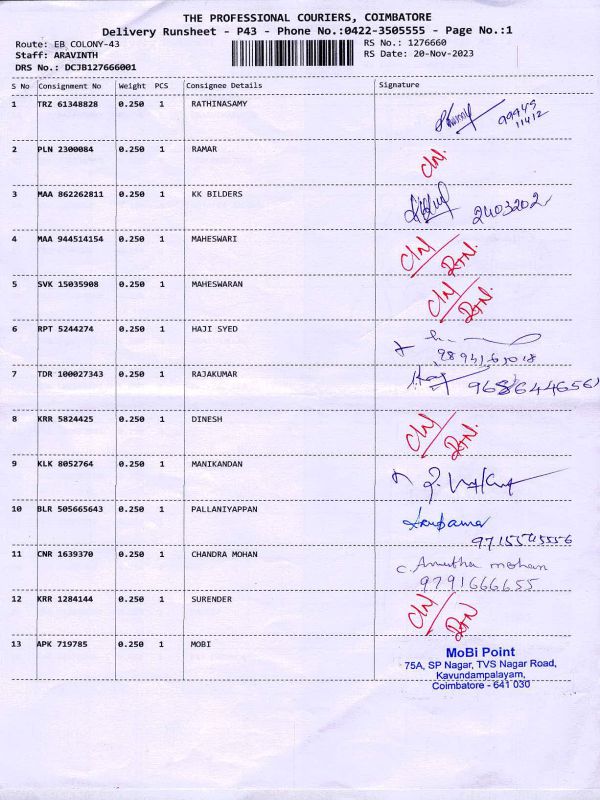 THE PROFESSIONAL COURIERS, COIMBATORE
Delivery Runsheet - P43 - Phone No.:0422-3505555 - Page No.:1
Route: EB COLONY-43 RS No.: 1276660
Staff: ARAVINTH RS Date: 20-Nov-2023
DRS No.: DCJB127666001
S No Consignment No Weight PCS Consignee Details Signature
1 TRZ 61348828 0.250 1 RATHINASAMY
99949
11412
2 PLN 2300084 0.250 1 RAMAR C/N.
3 MAA 862262811 0.250 1 KK BILDERS
4 MAA 944514154 0.250 1 MAHESWARI C/N/
5 SVK 15035908 0.250 1 MAHESWARAN C/N/
6 RPT 5244274 0.250 1 HAJI SYED
7 TDR 100027343 0.250 1 RAJAKUMAR
8 KRR 5824425 0.250 1 DINESH C/N/
9 KLK 8052764 0.250 1 MANIKANDAN
10 BLR 505665643 0.250 1 PALLANIYAPPAN
9715545556
11 CNR 1639370 0.250 1 CHANDRA MOHAN C. Amutha mohan
9791666655
12 KRR 1284144 0.250 1 SURENDER C/N/
13 APK 719785 0.250 1 MOBI
MoBi Point
75A, SP Nagar, TVS Nagar Road,
Kavundampalayam,
Coimbatore - 641 030